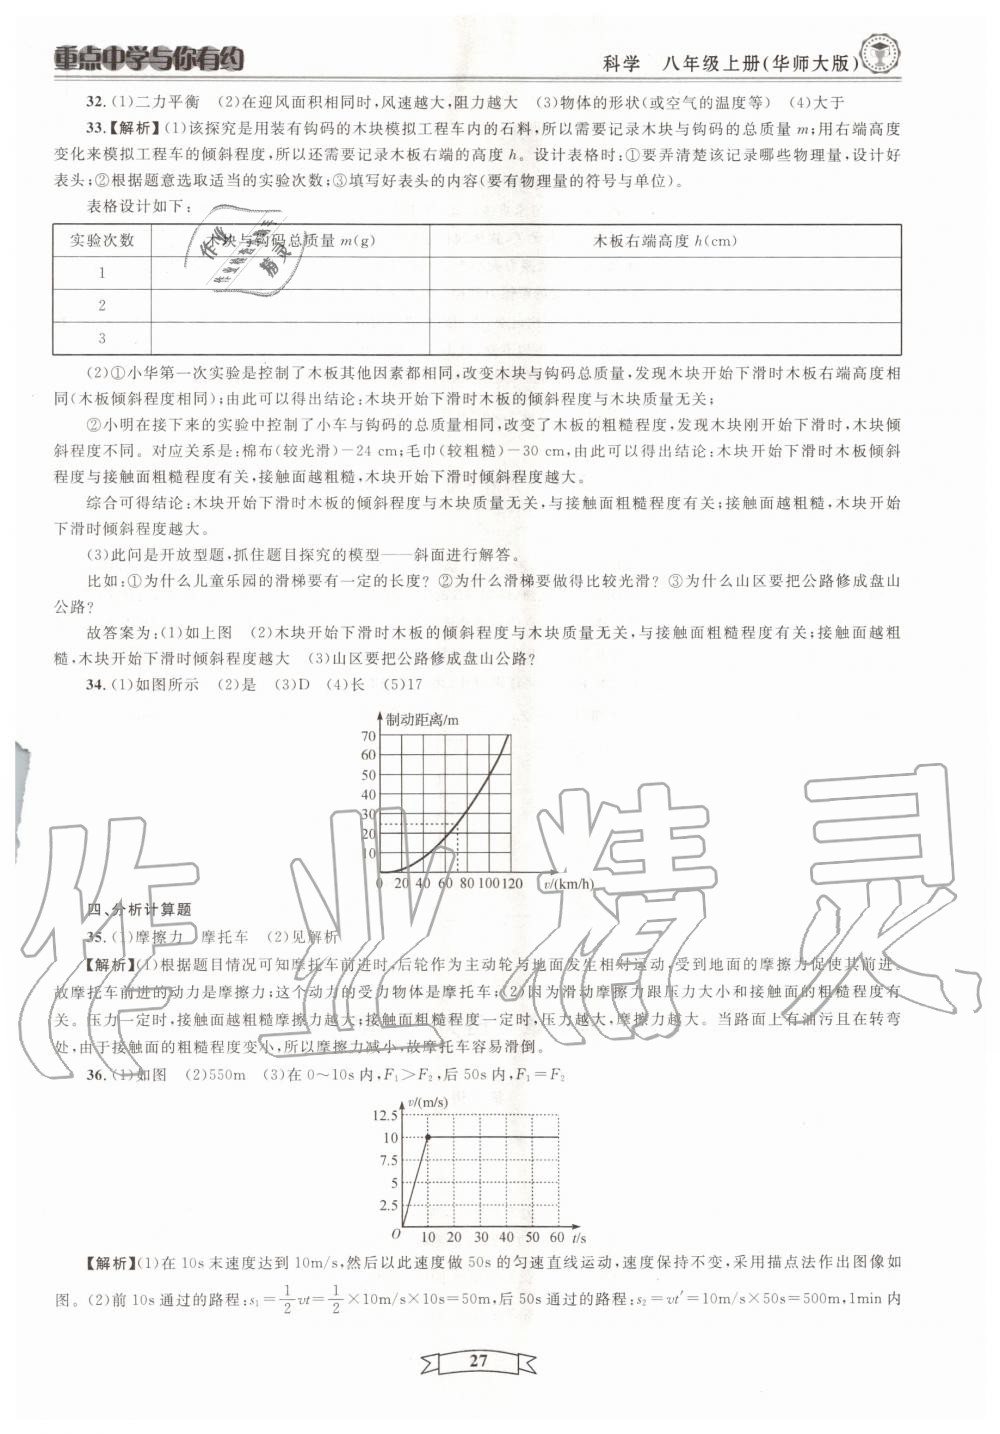 重点中学与你有约
科学　八年级上册(华师大版)
32.(1)二力平衡　(2)在迎风面积相同时,风速越大,阻力越大　(3)物体的形状(或空气的温度等)　(4)大于
33.【解析】(1)该探究是用装有钩码的木块模拟工程车内的石料,所以需要记录木块与钩码的总质量 m;用右端高度
变化来模拟工程车的倾斜程度,所以还需要记录木板右端的高度 h。设计表格时:①要弄清楚该记录哪些物理量,设计好
表头;②根据题意选取适当的实验次数;③填写好表头的内容(要有物理量的符号与单位)。
表格设计如下:
实验次数　木块与钩码总质量 m(g)　木板右端高度 h(cm)
1
2
3
(2)①小华第一次实验是控制了木板其他因素都相同,改变木块与钩码总质量,发现木块开始下滑时木板右端高度相
同(木板倾斜程度相同);由此可以得出结论:木块开始下滑时木板的倾斜程度与木块质量无关;
②小明在接下来的实验中控制了小车与钩码的总质量相同,改变了木板的粗糙程度,发现木块刚开始下滑时,木块倾
斜程度不同。对应关系是:棉布(较光滑)－24 cm;毛巾(较粗糙)－30 cm,由此可以得出结论:木块开始下滑时木板倾斜
程度与接触面粗糙程度有关,接触面越粗糙,木块开始下滑时倾斜程度越大。
综合可得结论:木块开始下滑时木板的倾斜程度与木块质量无关,与接触面粗糙程度有关;接触面越粗糙,木块开始
下滑时倾斜程度越大。
(3)此问是开放型题,抓住题目探究的模型——斜面进行解答。
比如:①为什么儿童乐园的滑梯要有一定的长度? ②为什么滑梯要做得比较光滑? ③为什么山区要把公路修成盘山
公路?
故答案为:(1)如上图　(2)木块开始下滑时木板的倾斜程度与木块质量无关,与接触面粗糙程度有关;接触面越粗
糙,木块开始下滑时倾斜程度越大　(3)山区要把公路修成盘山公路?
34.(1)如图所示　(2)是　(3)D　(4)长　(5)17
制动距离/m
70
60
50
40
30
20
10
0 20 40 60 80 100 120 v/(km/h)
四、分析计算题
35.(1)摩擦力　摩托车　(2)见解析
【解析】(1)根据题目情况可知摩托车前进时,后轮作为主动轮与地面发生相对运动,受到地面的摩擦力促使其前进。
故摩托车前进的动力是摩擦力;这个动力的受力物体是摩托车;(2)因为滑动摩擦力跟压力大小和接触面的粗糙程度有
关。压力一定时,接触面越粗糙摩擦力越大;接触面粗糙程度一定时,压力越大,摩擦力越大。当路面上有油污且在转弯
处,由于接触面的粗糙程度变小,所以摩擦力减小,故摩托车容易滑倒。
36.(1)如图　(2)550m　(3)在 0～10s 内,F₁＞F₂,后 50s 内,F₁＝F₂
v/(m/s)
12.5
10
7.5
5
2.5
O 10 20 30 40 50 60 t/s
【解析】(1)在 10s 末速度达到 10m/s,然后以此速度做 50s 的匀速直线运动,速度保持不变,采用描点法作出图像如
图。(2)前 10s 通过的路程:s₁＝1/2 vt＝1/2×10m/s×10s＝50m,后 50s 通过的路程:s₂＝vt′＝10m/s×50s＝500m,1min 内
27
作业精灵